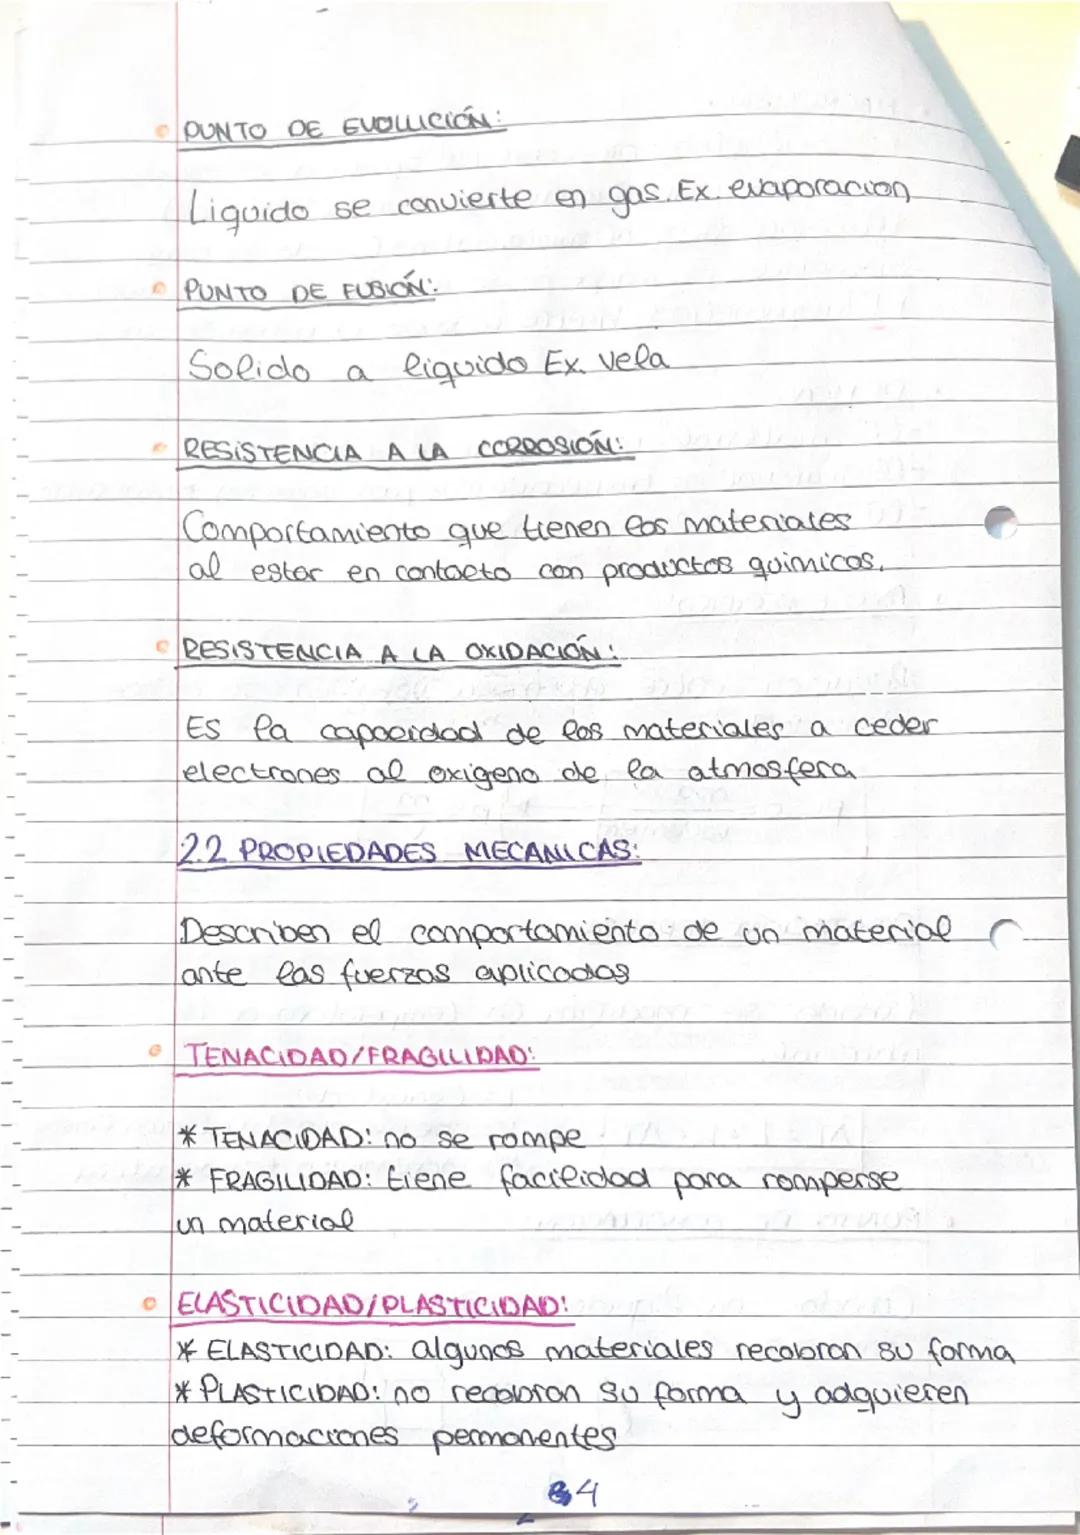 PUNTO DE EVOLUCIÓN:
Liquido se convierte en gas. Ex. evaporacion
PUNTO DE FUSIÓN:
Solido a liquido Ex. vela
RESISTENCIA A LA CORROSIÓN:
Comportamiento que tienen los materiales
al estar en contacto con productos quimicos.
RESISTENCIA A LA OXIDACIÓN:
ES la capacidad de los materiales a ceder
electrones al oxigeno de la atmosfera
2.2 PROPIEDADES MECANICAS:
Describen el comportamiento de un material
ante las fuerzas aplicadas
TENACIDAD/FRAGILIDAD:
* TENACIDAD: no se rompe
* FRAGILIDAD: tiene facilidad para romperse
un material
ELASTICIDAD/PLASTICIDAD:
* ELASTICIDAD: algunos materiales recobran su forma
* PLASTICIDAD: no recobran su forma y adquieren
deformaciones permanentes
4